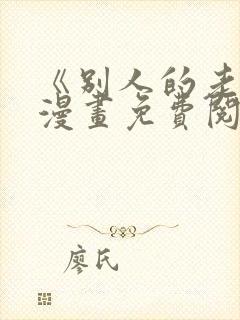 《别人的老
漫畫免費閱
廖氏